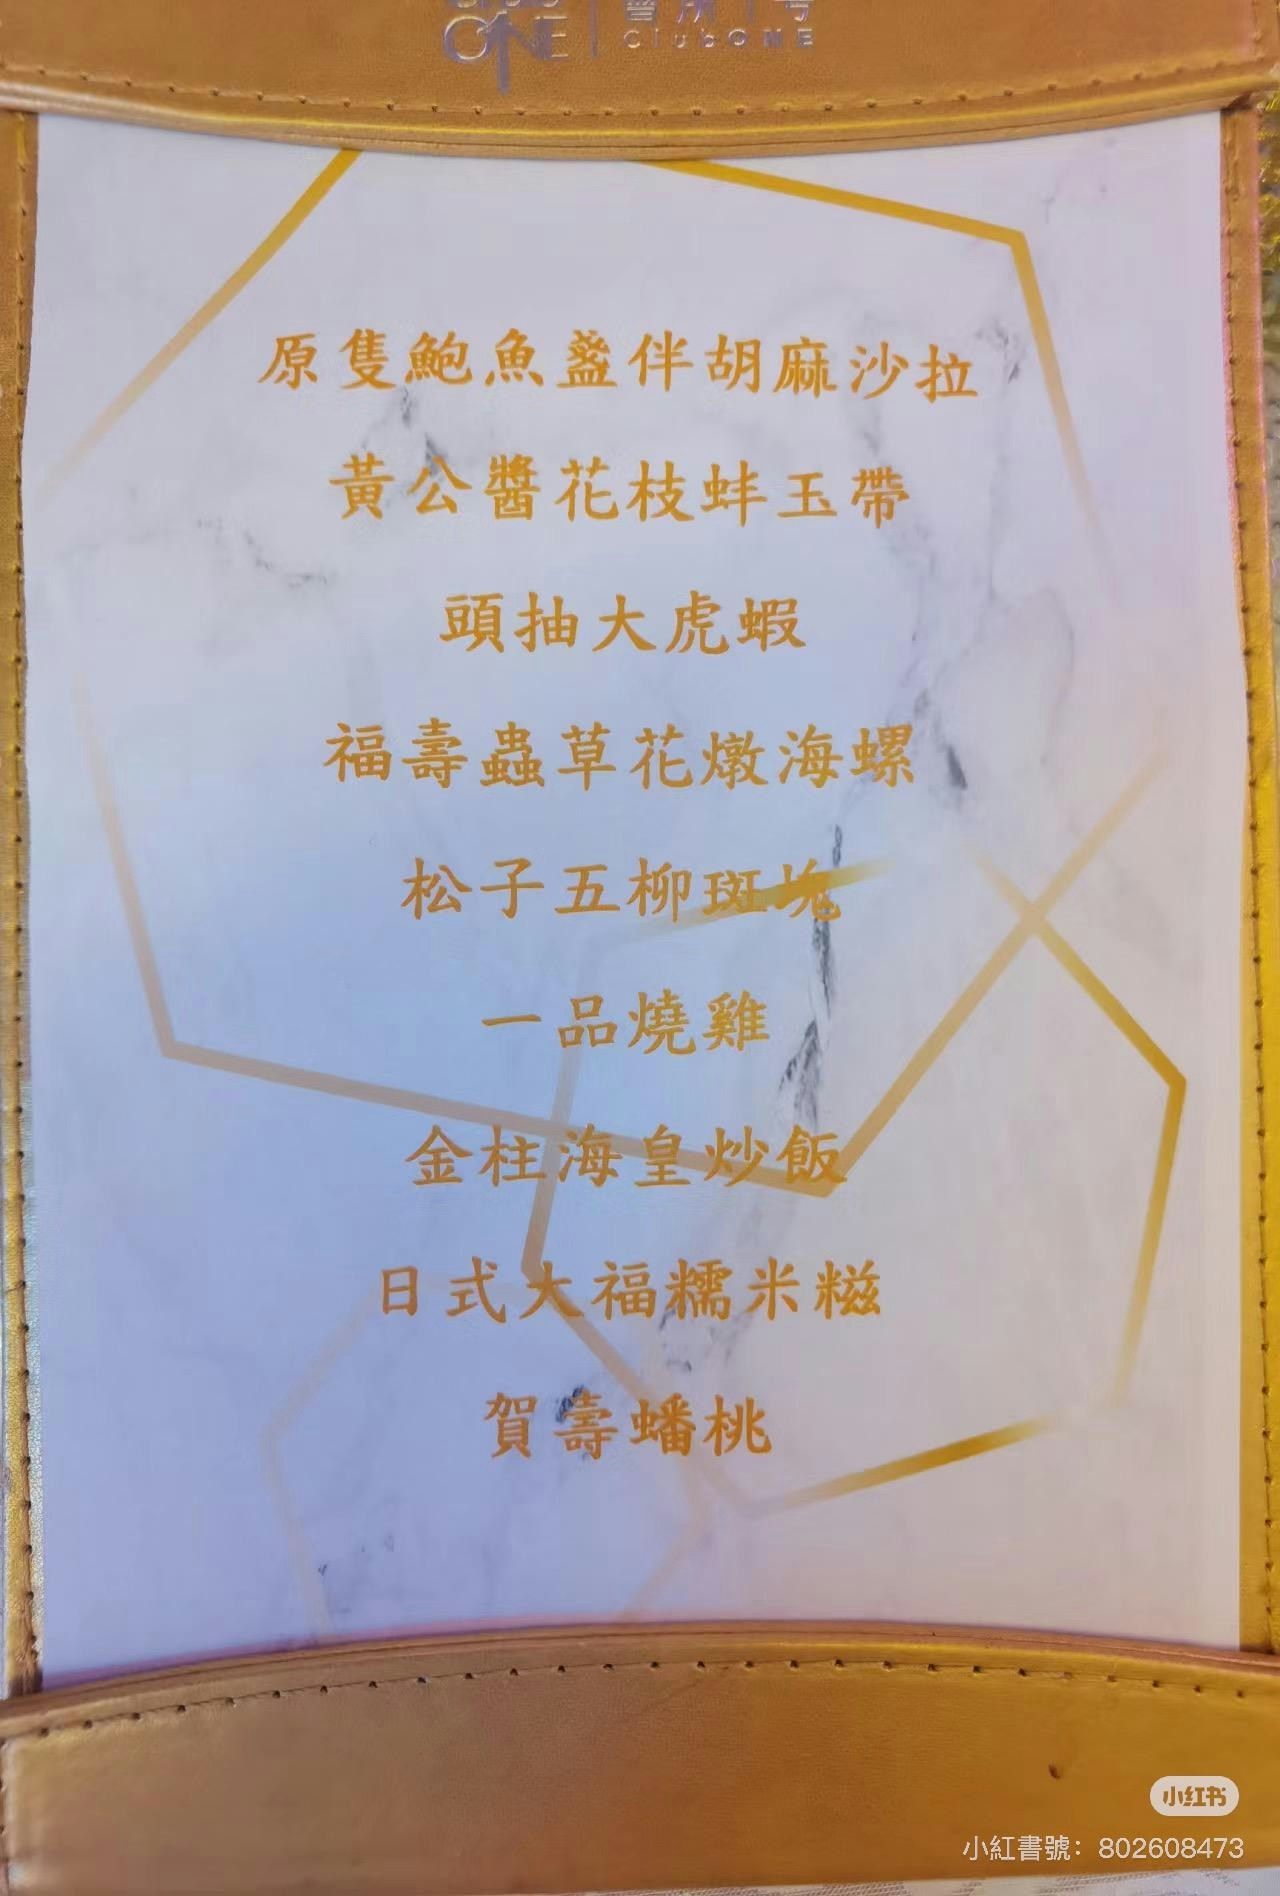 ONE
會所1号
ClubONE
原隻鮑魚盞伴胡麻沙拉
黃公醬花枝蚌玉帶
頭抽大虎蝦
福壽蟲草花燉海螺
松子五柳斑塊
一品燒雞
金柱海皇炒飯
日式大福糯米糍
賀壽蟠桃
小红书
小紅書號：802608473